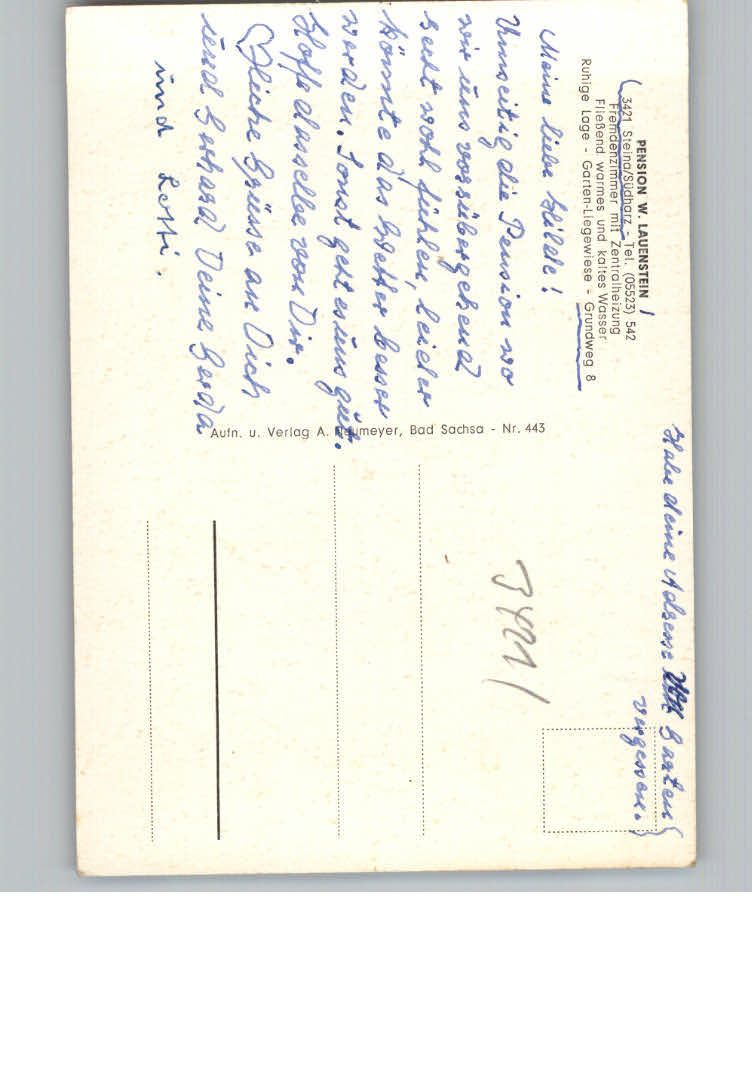 PENSION W. LAUENSTEIN
3421 Steina/Südharz - Tel. (05523) 542
Fremdenzimmer mit Zentralheizung
Fließend warmes und kaltes Wasser
Ruhige Lage - Garten-Liegewiese - Grundweg 8
Meine liebe Hilde!
Umseitig die Pension wo
wir uns vorrübergehend
recht wohl fühlen, leider
könnte das Wetter besser
werden. Sonst geht es uns gut.
Hoffe dasselbe von Dir.
liche Grüsse an Dich
und Gerhard Deine Gerda
und Lotti.
Aufn. u. Verlag A. Neumeyer, Bad Sachsa - Nr. 443
Habe deine Adresse Garten
vergessen.
3421